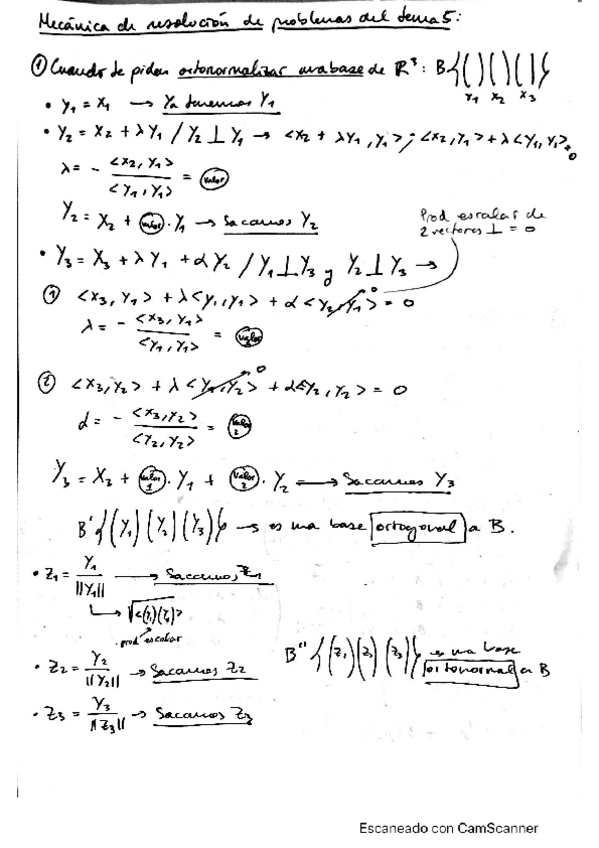 Mecánica de resolución de problemas del tema 5:
① Cuando te pidan ortonormalizar una base de R³: B{( ) ( ) ( )}
x₁ x₂ x₃
• Y₁ = X₁ → Ya tenemos Y₁
• Y₂ = X₂ + λY₁ / Y₂ ⊥ Y₁ → <X₂ + λY₁, Y₁> ; <X₂, Y₁> + λ<Y₁, Y₁> = 0
λ = - <X₂, Y₁> / <Y₁, Y₁> = valor
Y₂ = X₂ + valor · Y₁ → Sacamos Y₂
Prod escalar de
2 vectores ⊥ = 0
• Y₃ = X₃ + λY₁ + αY₂ / Y₁ ⊥ Y₃ y Y₂ ⊥ Y₃ →
① <X₃, Y₁> + λ<Y₁, Y₁> + α<Y₂, Y₁> 0 = 0
λ = - <X₃, Y₁> / <Y₁, Y₁> = valor
② <X₃, Y₂> + λ<Y₁, Y₂> 0 + α<Y₂, Y₂> = 0
α = - <X₃, Y₂> / <Y₂, Y₂> = valor 2
Y₃ = X₂ + valor 1 · Y₁ + valor 2 · Y₂ → Sacamos Y₃
B' {(Y₁) (Y₂) (Y₃)} → es una base ortogonal a B.
• Z₁ = Y₁ / ||Y₁|| → Sacamos Z₁
√<(Y₁)(Y₁)>
prod escalar
• Z₂ = Y₂ / ||Y₂|| → Sacamos Z₂
B'' {(Z₁) (Z₂) (Z₃)} es una base
ortonormal a B
• Z₃ = Y₃ / ||Z₃|| → Sacamos Z₃
Escaneado con CamScanner